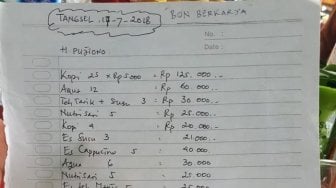 TANGSEL .17-7-2018 BON BERKARYA
No. :
Date :
H. PUJIONO
Kopi 25 x Rp 5000 = Rp 125.000..
Aqua 12 = Rp 60.000..
Teh Tarik + Susu 3 = Rp 30.000
Nutrisari 5 = Rp 25.000..
Kopi 4 = Rp 20.000..
Es Susu 3 21.000..
Es Cappucino 5 : 40.000
Aqua 6 : 30.000
Nutrisari 5 = 25.000
Es 5 25.000